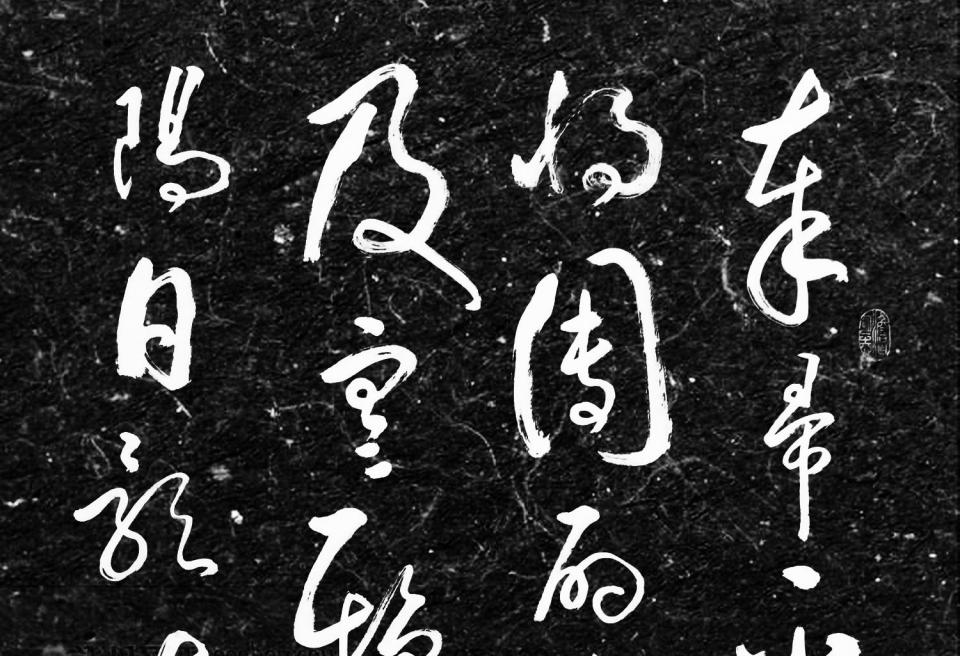 奉帚
將團扇
及寒鴉
陽日影